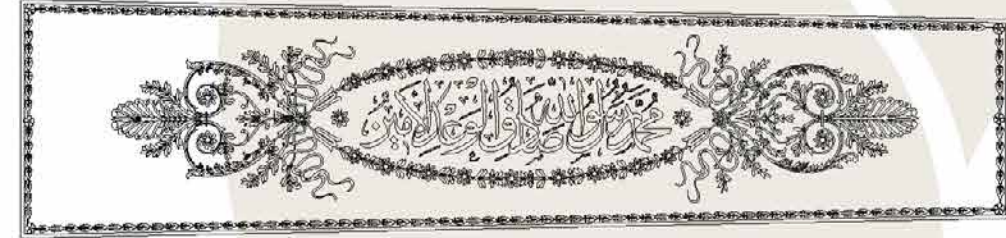 محمد رسول الله صادق الوعد الأمين